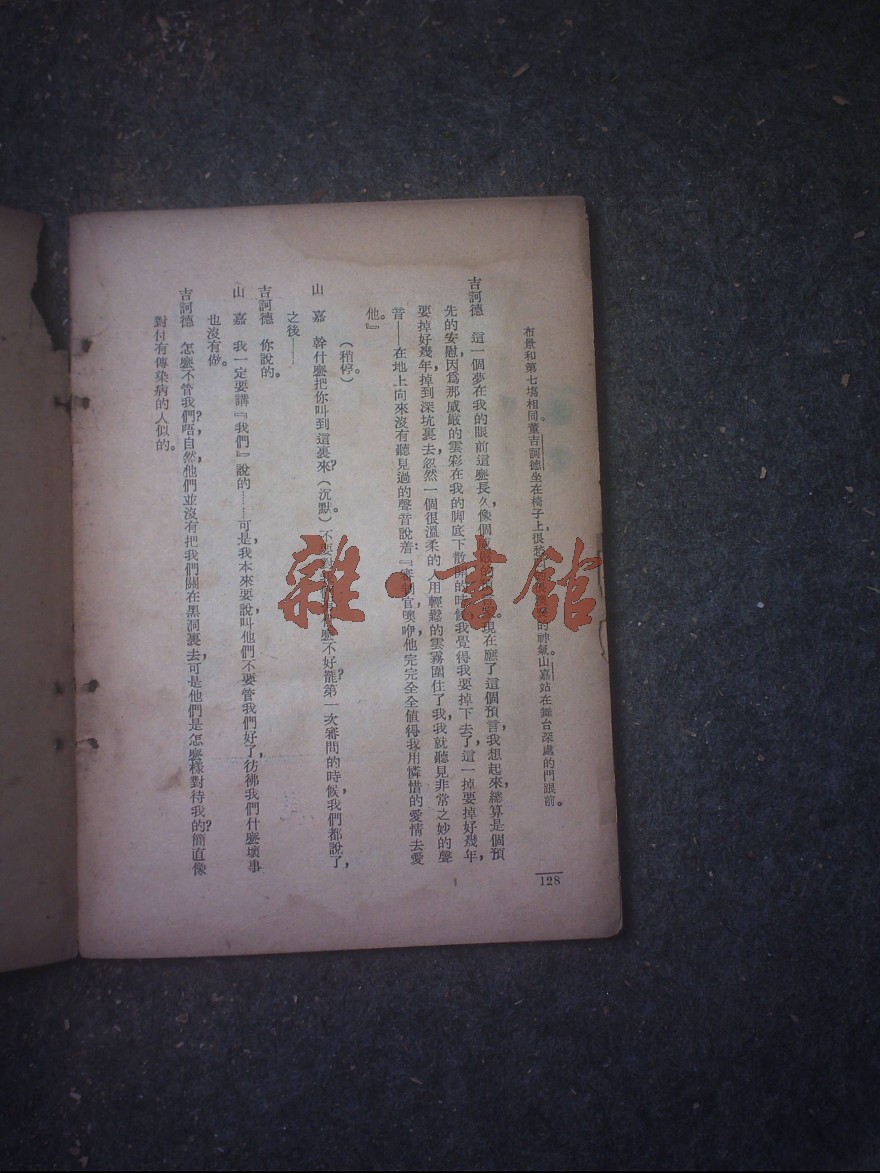 布景和第七塲相同。董吉訶德坐在椅子上，很愁 的神氣。山嘉站在舞台深處的門跟前。
吉訶德　這一個夢在我的眼前這麼長久，像個 現在應了這個預言，我想起來，總算是個預
先的安慰，因爲那威嚴的雲彩在我的脚底下散開的時候，我覺得我要掉下去了，這一掉要掉好幾年，
要掉好幾年，掉到深坑裏去，忽然一個很溫柔的人用輕鬆的雲霧圍住了我，我就聽見非常之妙的聲
音——在地上向來沒有聽見過的聲音說着：『審制官噢，咿，他完完全全值得我用憐惜的愛情去愛
他。』
（稍停）。
山　嘉　幹什麼把你叫到這裏來？（沉默）。不要 麼不好罷？第一次審問的時候，我們都說了，
之後——
吉訶德　你說的。
山　嘉　我一定要講『我們』說的……可是，我本來要說，叫他們不要管我們好了，彷彿我們什麼壞事
也沒有做。
吉訶德　怎麼不管我們？唔，自然，他們並沒有把我們關在黑洞裏去，可是他們是怎麼樣對待我的？簡直像
對付有傳染病的人似的。
128
雜·書館